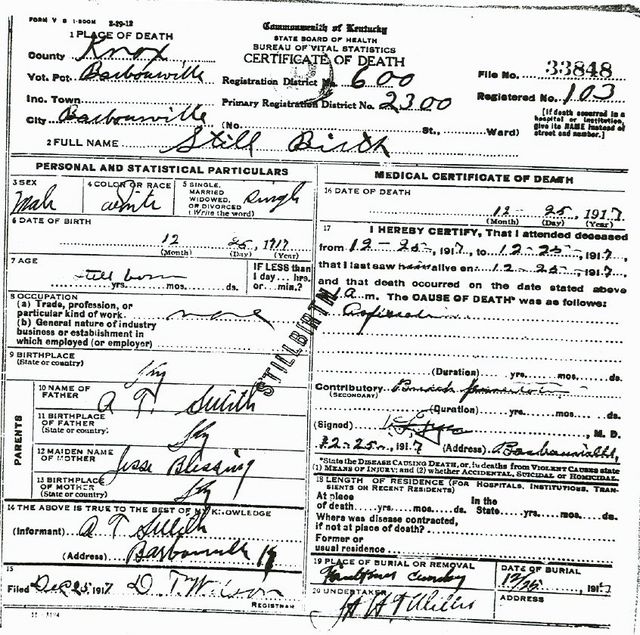 FORM V S 1-500M 2-29-12
Commonwealth of Kentucky
STATE BOARD OF HEALTH
BUREAU OF VITAL STATISTICS
CERTIFICATE OF DEATH
1 PLACE OF DEATH
County Knox
Vot. Pct. Barbourville
Inc. Town
City Barbourville
Registration District No. 600
Primary Registration District No. 2300
(No. St., Ward)
File No. 33848
Registered No. 103
[If death occurred in a hospital or institution, give its NAME instead of street and number.]
2 FULL NAME Still Birth
PERSONAL AND STATISTICAL PARTICULARS
3 SEX Male
4 COLOR OR RACE white
5 SINGLE, MARRIED WIDOWED, OR DIVORCED (Write the word) Single
6 DATE OF BIRTH
12 25, 1917
(Month) (Day) (Year)
7 AGE
still born
yrs. mos. ds.
IF LESS than 1 day... hrs. or... min.?
8 OCCUPATION
(a) Trade, profession, or particular kind of work. none
(b) General nature of industry business or establishment in which employed (or employer)
9 BIRTHPLACE
(State or country) Ky
PARENTS
10 NAME OF FATHER A T.
11 BIRTHPLACE OF FATHER
(State or country) Ky
12 MAIDEN NAME OF MOTHER Jesse Blessing
13 BIRTHPLACE OF MOTHER
(State or country) Ky
14 THE ABOVE IS TRUE TO THE BEST OF MY KNOWLEDGE
(Informant) A T
(Address) Barbourville Ky
15
Filed Dec 25 1917 D T
REGISTRAR
STILLBIRTH
MEDICAL CERTIFICATE OF DEATH
16 DATE OF DEATH
12 - 25, 1917
(Month) (Day) (Year)
17 I HEREBY CERTIFY, That I attended deceased
from 12-25-, 1917, to 12-25-, 1917,
that I last saw him alive on 12-25-, 1917,
and that death occurred on the date stated above
1 A. m. The CAUSE OF DEATH* was as follows:
(Duration) yrs. mos. ds.
Contributory
(SECONDARY)
(Duration) yrs. mos. ds.
(Signed) M. D.
12-25-, 1917 (Address) Barbourville,
*State the DISEASE CAUSING DEATH, or, in deaths from VIOLENT CAUSES state
(1) MEANS OF INJURY; and (2) whether ACCIDENTAL, SUICIDAL or HOMICIDAL.
18 LENGTH OF RESIDENCE (FOR HOSPITALS, INSTITUTIONS, TRANSIENTS OR RECENT RESIDENTS)
At place of death yrs. mos. ds. In the State yrs. mos. ds.
Where was disease contracted,
if not at place of death?
Former or
usual residence
19 PLACE OF BURIAL OR REMOVAL
DATE OF BURIAL
12/25, 1917
20 UNDERTAKER
ADDRESS